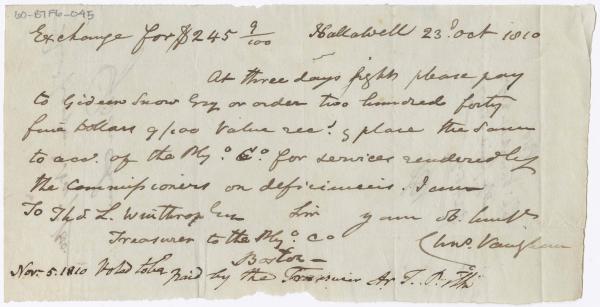 60-BTF6-045
Exchange for $245 9/100 Hallowell 23d. Oct 1810
At three days sight please pay
to Gideon Snow Esq or order two hundred forty
five Dollars 9/100 Value recd. & place the same
to acct. of the Ply.o Co. for services rendered by
the commissioners on deficiencies. I am
To Thos. L. Winthrop Esq Sir your ob. Servt.
Treasurer to the Ply.o Co Chas. Vaughan
Boston
Nov. 5. 1810 Voted to be paid by the Treasurer